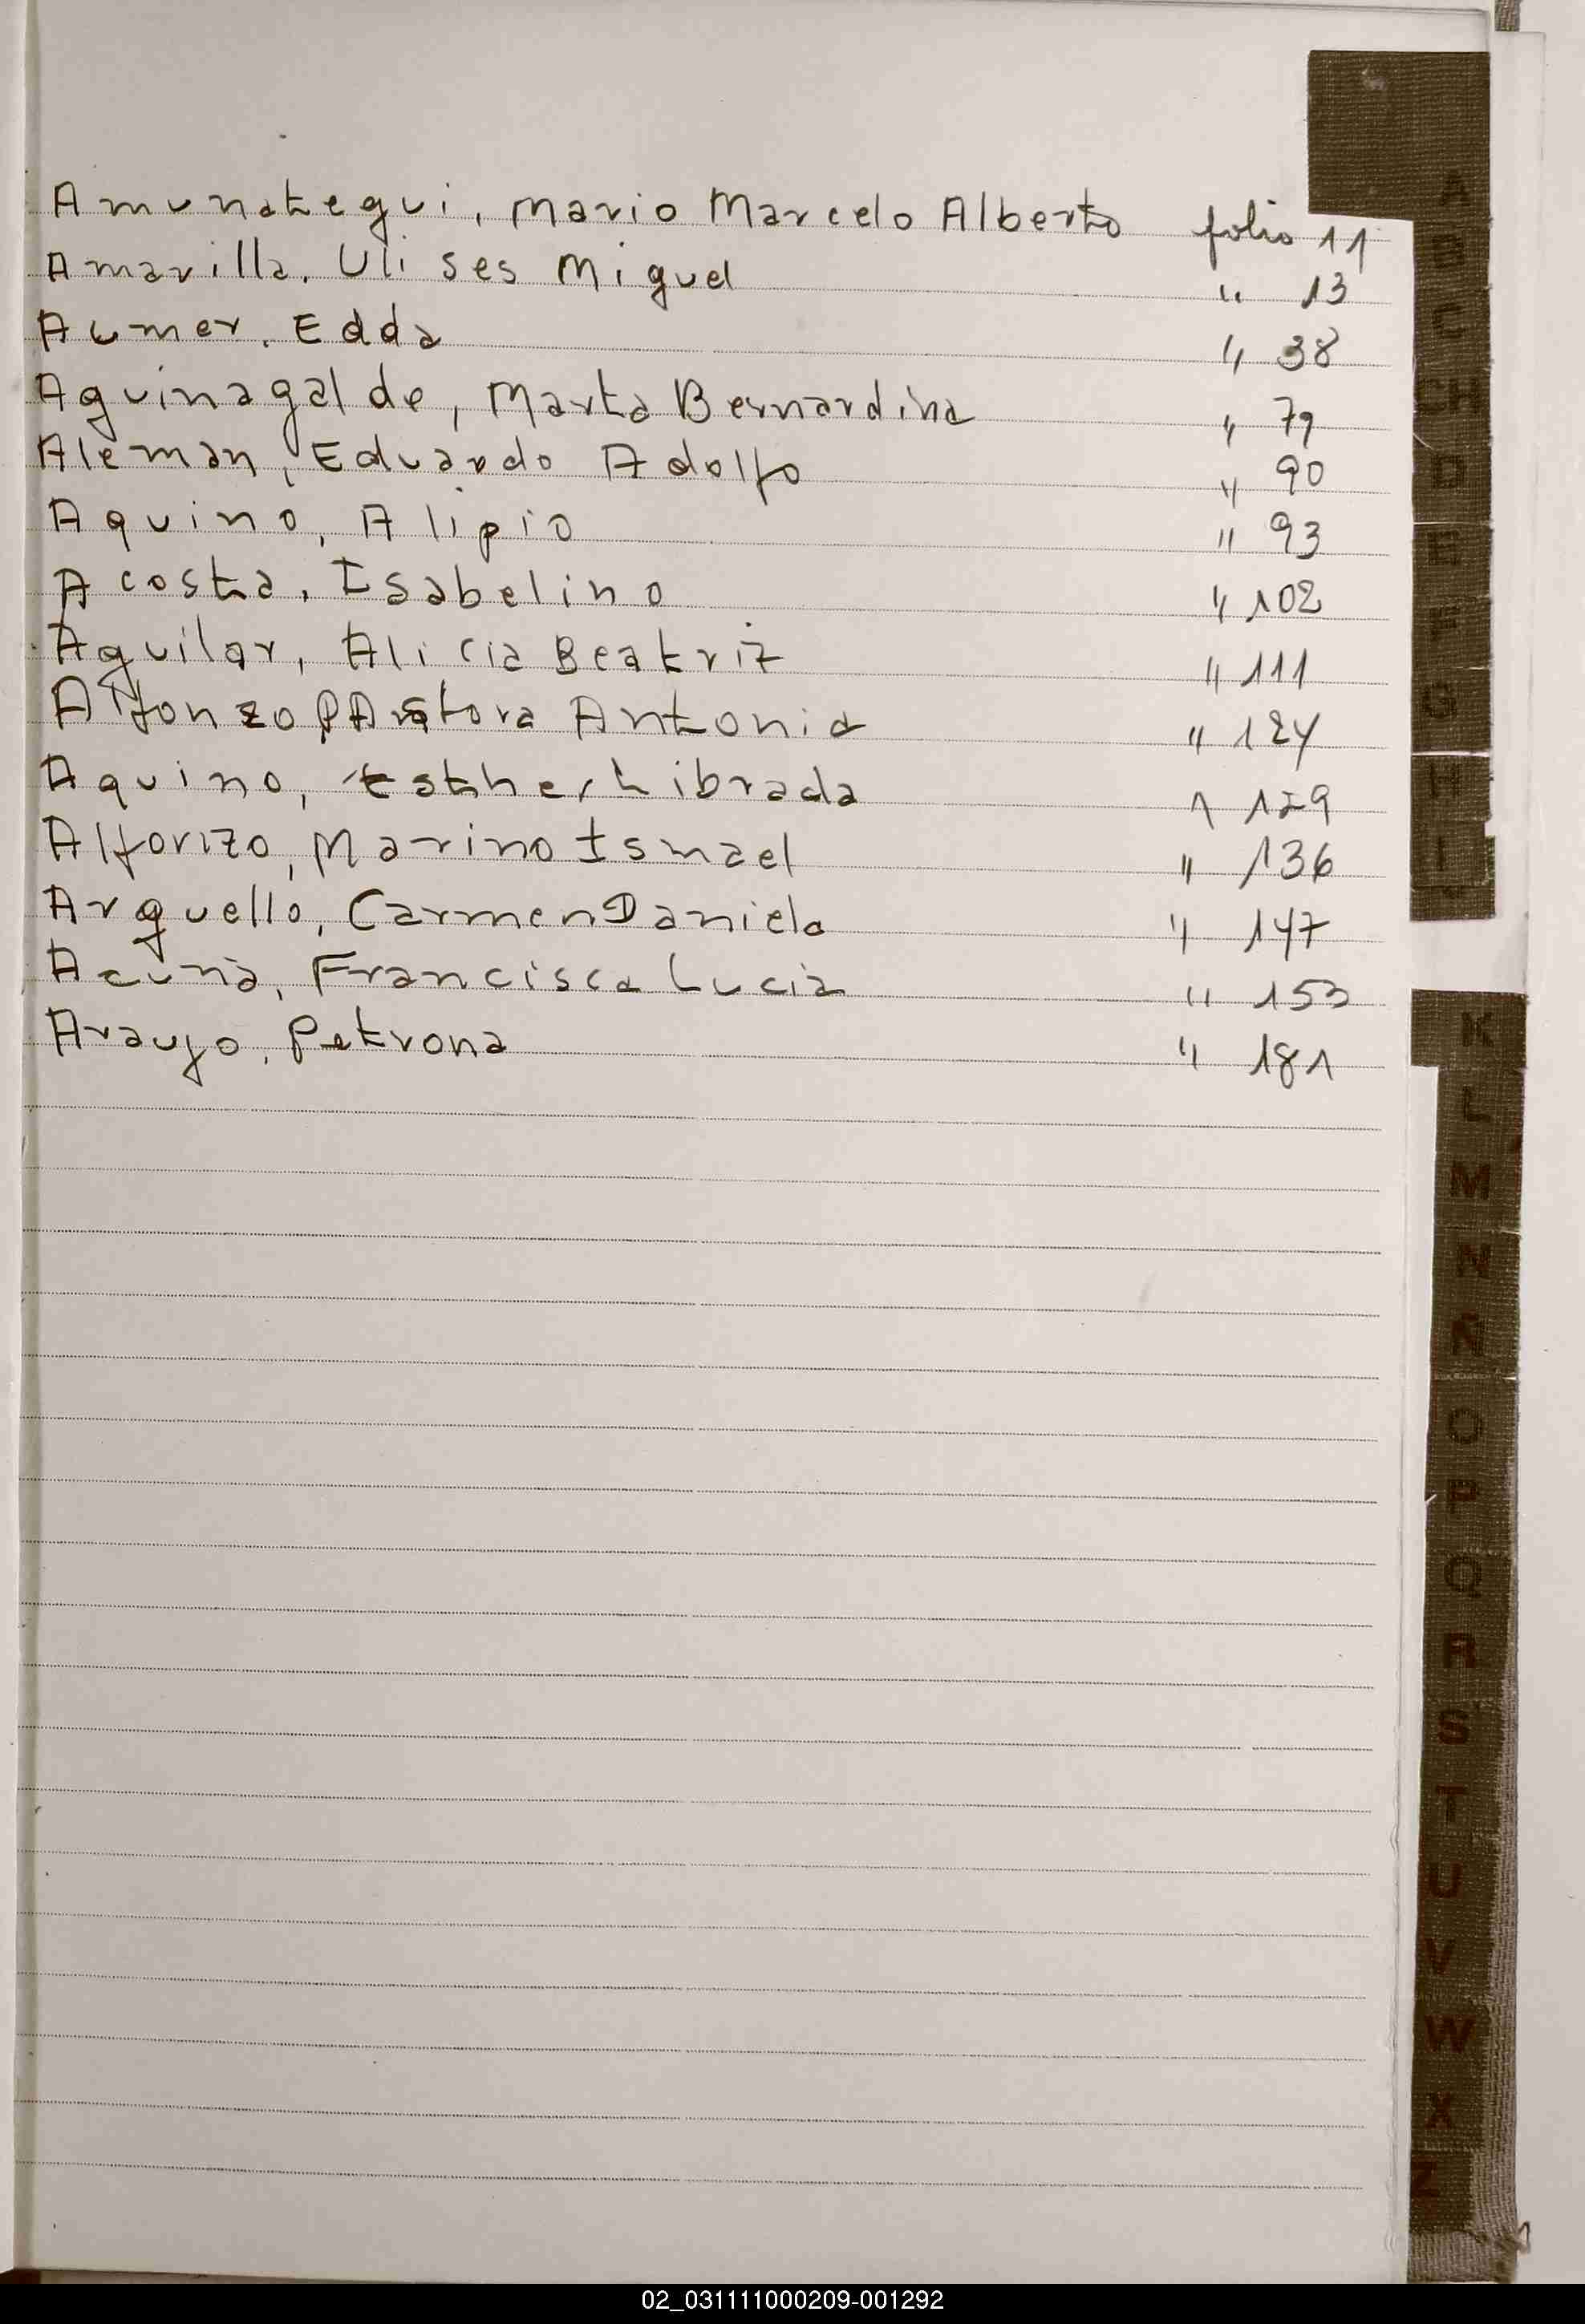 Amunategui, Mario Marcelo Alberto folio 11
Amarilla, Ulises Miguel " 13
Aumer, Edda " 38
Aguinagalde, Marta Bernardina " 79
Aleman, Eduardo Adolfo " 90
Aquino, Alipio " 93
Acosta, Isabelino " 102
Aguilar, Alicia Beatriz " 111
Alfonzo PAstora Antonia " 124
Aquino, Esther Librada " 129
Alfonzo, Marino Ismael " 136
Arguello, Carmen Daniela " 147
Acuña, Francisca Lucia " 153
Araujo, Petrona " 181
A
B
C
CH
D
E
F
G
H
I
K
L
M
N
Ñ
O
P
Q
R
S
T
U
V
W
X
Z
02_031111000209-001292